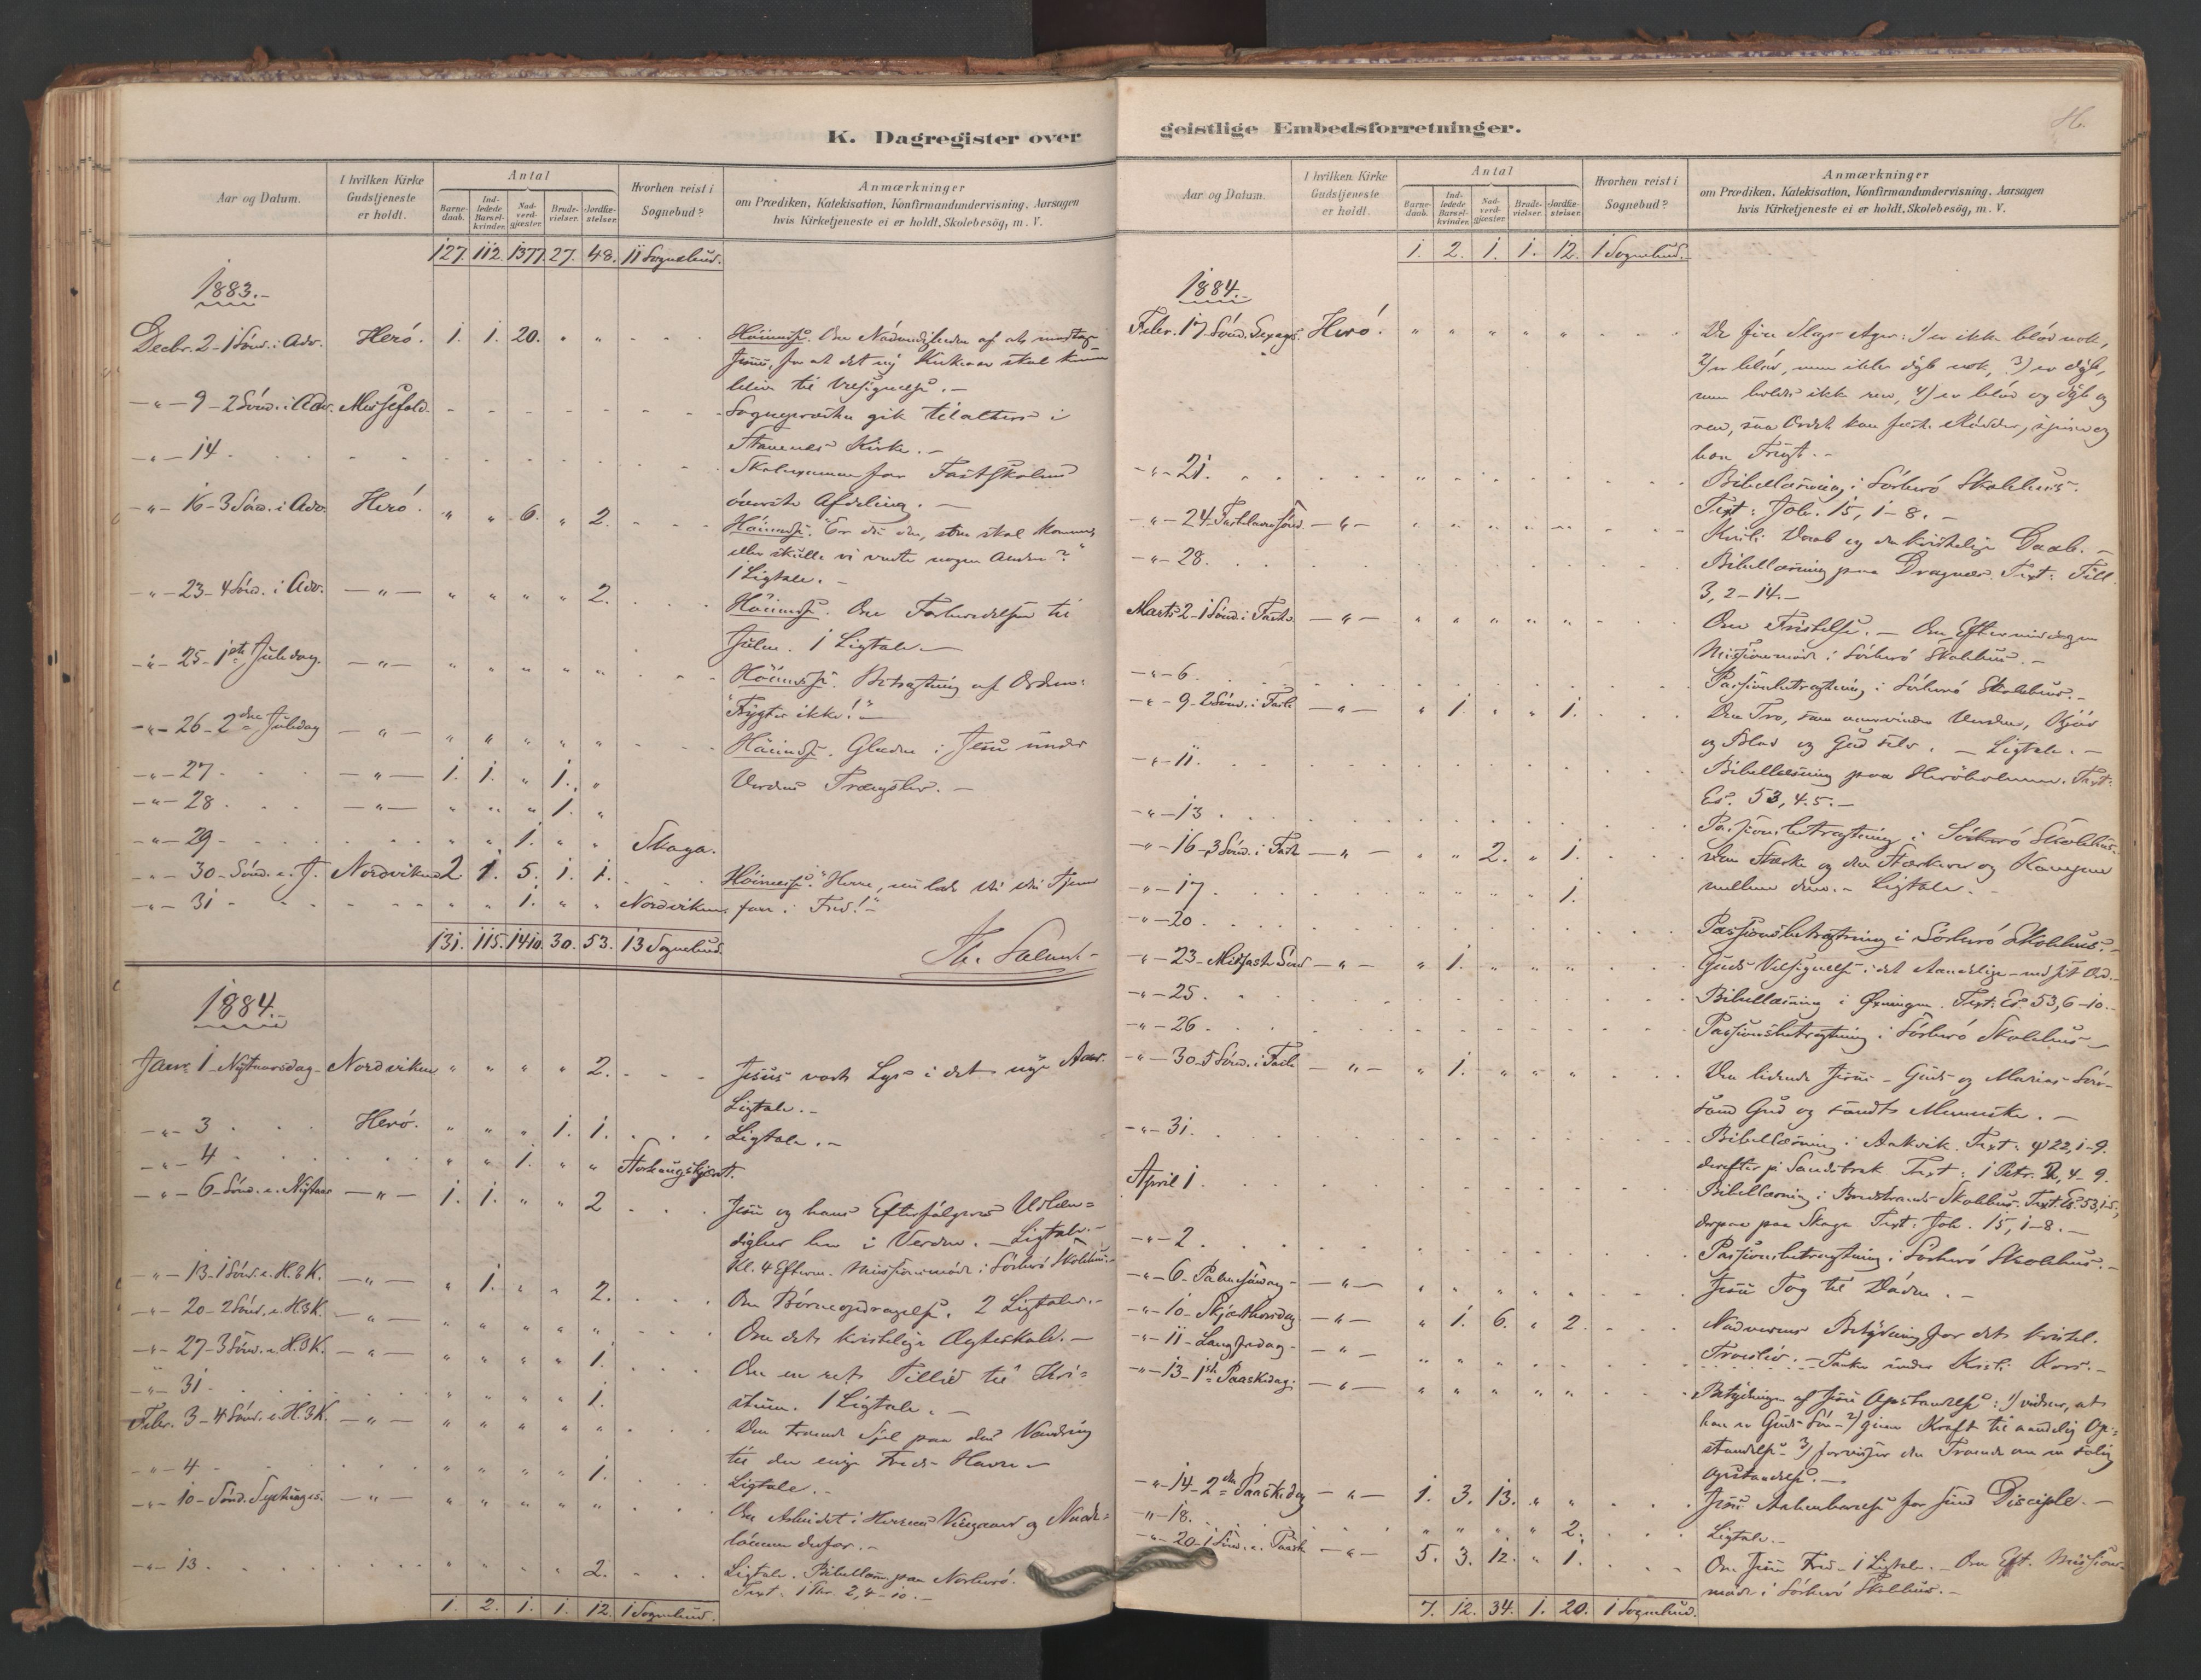 K. Dagregister over
Aar og Datum.
I hvilken Kirke Gudstjeneste er holdt.
Antal
Barnedaab.
Indledede Barselkvinder.
Nadverdgjæster.
Brudevielser.
Jordfæstelser.
Hvorhen reist i Sognebud?
Anmærkninger
om Prædiken, Katekisation, Konfirmandundervisning, Aarsagen
hvis Kirketjeneste ei er holdt, Skolebesög, m. V.
127. 112. 1377. 27. 48. 11 Sognebud.
1883.
Decbr. 2 - 1 Sönd. i Adv. Herö. 1. 1. 20. " " Höimesse. Om Nödvendigheden af at modtage
Jesum, for at det ny Kirkeaar skal kunne
blive til Velsignelse. -
-"- 9 - 2 Sönd. i Adv. Messefald. Sognepræsten gik til alters i
Stamnes Kirke. -
-"- 14 Skoleexamen for Fastskolens
överste Afdeling. -
-"- 16 - 3 Sönd. i Adv. Herö. " " 6. " 2. Höimesse. "Er du den, som skal komme,
eller skulle vi vente nogen Anden?"
1 Ligtale. -
-"- 23 - 4 Sönd. i Adv. -"- " " " " 2. Höimesse. Om Forberedelsen til
Julen. 1 Ligtale. -
-"- 25 - 1ste Juledag. -"- " " " " " Höimesse. Betragtning af Ordene:
"Frygter ikke!" -
-"- 26 - 2den Juledag -"- " " " " " Höimesse. Glæden i Jesu under
Verdens Trængsler. -
-"- 27 -"- 1. 1. " 1. "
-"- 28 -"- " " " 1. "
-"- 29 " " 1. " " Skaga.
-"- 30 - Sönd. e. J. Nordviken 2. 1. 5. 1. 1. Höimesse. "Herre, nu lader du din Tjener
-"- 31 " " 1. " " Nordviken. fare i Fred!" -
131. 115. 1410. 30. 53. 13 Sognebud.
1884.
Janr. 1 - Nytaarsdag - Nordviken " " " " 2. Jesus vort Lys i det nye Aar.
Ligtale. -
-"- 3 Herö. " " " 1. 1. Ligtale. -
-"- 4 " " 1. " "
-"- 6 - Sönd. e. Nytaar -"- 1. 1. " " 2 Jesu og hans Efterfölgeres Udlæn=
dighed her i Verden. - Ligtale. -
Kl. 4 Efterm. Missionsmöde i Sörherö Skolehus. -
-"- 13 - 1 Sönd. e. H. 3 K. -"- " 1. " " 2. Om Börneopdragelse. 2 Ligtaler. -
-"- 20 - 2 Sönd. e. H. 3 K. -"- " " " " " Om det kristelige Ægteskab. -
-"- 27 - 3 Sönd. e. H. 3 K. -"- " " " " 1. Om en ret Tillid til Kri=
-"- 31 " " " " 1. stum. 1 Ligtale. -
Febr. 3 - 4 Sönd. e. H. 3 K. -"- " " " " " Den troende Sjel paa sin Vandring
til den evige Freds Havn -
-"- 4 " " " " 1. Ligtale. -
-"- 10 - Sönd. Septuages. -"- " " " " " Om Arbeidet i Herrens Vingaard og Naade=
lönnen derfor. -
-"- 13 " " " " 2. Ligtale. Bibellæsn. paa Nordherö.
Text. 2, 4-10. -
1. 2. 1. 1. 12. 1 Sognebud.
geistlige Embedsforretninger.
Aar og Datum.
I hvilken Kirke Gudstjeneste er holdt.
Antal
Barnedaab.
Indledede Barselkvinder.
Nadverdgjæster.
Brudevielser.
Jordfæstelser.
Hvorhen reist i Sognebud?
Anmærkninger
om Prædiken, Katekisation, Konfirmandundervisning, Aarsagen
hvis Kirketjeneste ei er holdt, Skolebesög, m. V.
1. 2. 1. 1. 12. 1 Sognebud.
1884.
Febr. 17 - Sönd. Sexages. Herö. " " " " " De fire Slags Agre: 1) er ikke blöd nok,
2) er blöd, men ikke dyb nok, 3) er dyb,
men holdes ikke ren, 4) er blöd og dyb og
ren, saa Ordet kan fæste Rödder, spire og
bære Frugt. -
-"- 21. Bibellæsning i Sörherö Skolehus.
Text: Joh. 15, 1-8. -
-"- 24 - Fastelavns Sönd. -"- " " " " " Kristi Daab og den kristelige Daab. -
-"- 28. Bibellæsning paa Dragnes. Text: Fill.
3, 2-14. -
Marts 2 - 1 Sönd. i Faste -"- " " " " " Om Fristelse. - Om Eftermiddagen
Missionsmöde i Sörherö Skolehus. -
-"- 6. Passionsbetragtning i Sörherö Skolehus. -
-"- 9 - 2 Sönd. i Faste -"- " 1. " " 1. Den Tro, som overvinder Verden, Kjöd
og Blod og Gud selv. - Ligtale. -
-"- 11. Bibellæsning paa Heröholmen. Text:
Es. 53, 4.5. -
-"- 13. Passionsbetragtning i Sörherö Skolehus.
-"- 16 - 3 Sönd. i Faste -"- " " 2. " 1. Den Stærke og den Stærkere og Kampen
-"- 17. " 1. mellem dem. - Ligtale. -
-"- 20. Passionsbetragtning i Sörherö Skolehus. -
-"- 23 - Midfaste Sönd -"- " 1. " " " Guds Velsignelse i det Aandelige - ved sit Ord. -
-"- 25. Bibellæsning i Øxningen. Text: Es. 53, 6-10. -
-"- 26. Passionsbetragtning i Sörherö Skolehus -
-"- 30 - 5 Sönd. i Faste -"- " 1. " " " Den lidende Jesus - Guds og Marias Sön -
sand Gud og sandt Menneske. -
-"- 31. Bibellæsning i Aakvik. Text: ψ 22, 1-9.
derefter Text: 1 Petr. 2, 4-9.
April 1. Bibellæsning i Skolehus. Text: Es. 53, 1-5,
derpaa paa Skaga Text. Joh. 15, 1-8. -
-"- 2. Passionsbetragtning i Sörherö Skolehus. -
-"- 6 - Palmesöndag - -"- " " " " " Jesu Tog til Döden. -
-"- 10 - Skjærthorsdag -"- " 1. 6. " 2. Nadverens Betydning for det kristel.
-"- 11 - Langfredag - -"- " " " " " Troesliv. - Tanker under Kristi Kors. -
-"- 13 - 1ste Paaskedag. -"- " " " " " Betydningen af Jesu Opstandelse: 1) vidner, at
han er Guds Sön - 2) giver Kraft til aandelig Op=
standelse - 3) forvisser den Troende om en salig
Opstandelse. -
-"- 14 - 2den Paaskedag -"- 1. 3. 13. " " Jesu Aabenbarelse for sine Disciple. -
-"- 18. " " " " 2. Ligtale. -
-"- 20 - 1 Sönd. e. Paaske -"- 5. 3. 12. " 1. Om Jesu Fred - 1 Ligtale. - Om Eft. Missions-
möde i Sörherö Skolehus. -
7. 12. 34. 1. 20. 1 Sognebud.